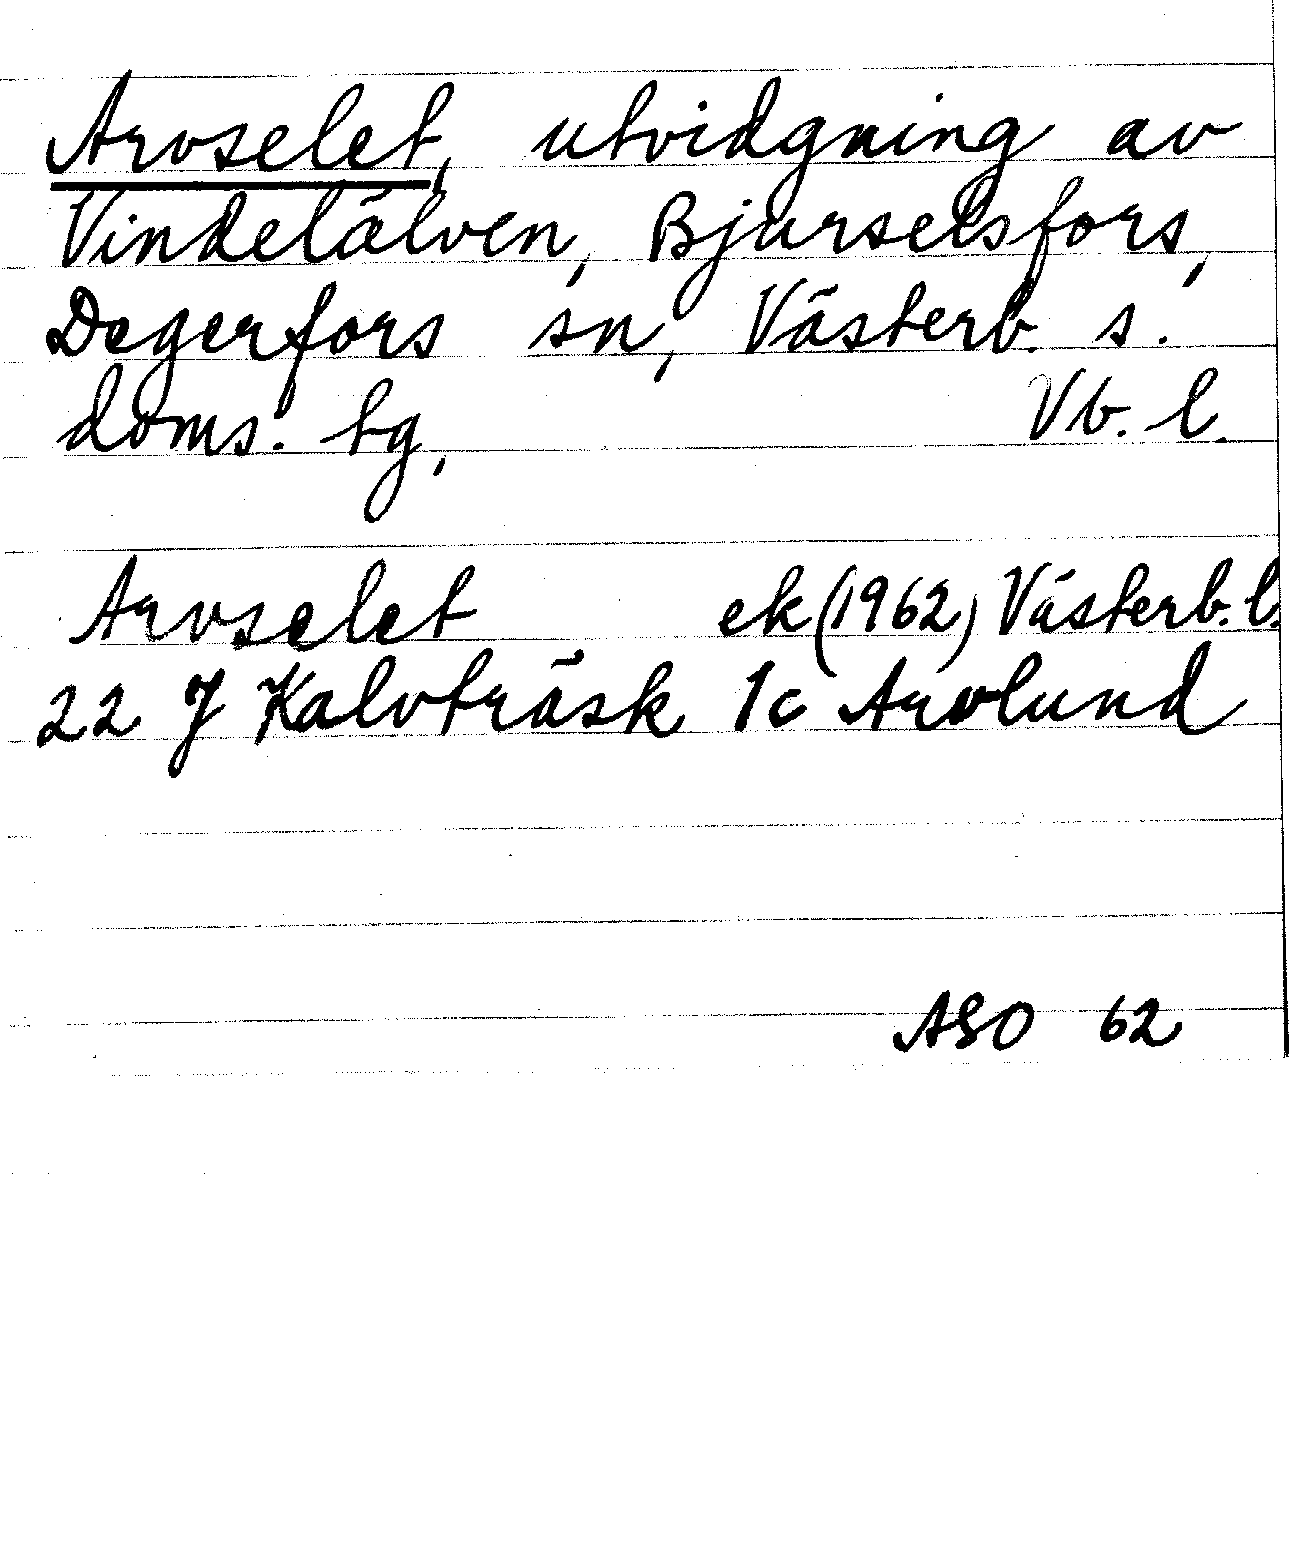 Arvselet, utvidgning av
Vindelälven, Bjurselsfors,
Degerfors sn, Västerb. s.
doms. tg, Vb. l.
Arvselet ek (1962) Västerb. l.
22 J Kalvträsk 1c Arvlund
ASO 62